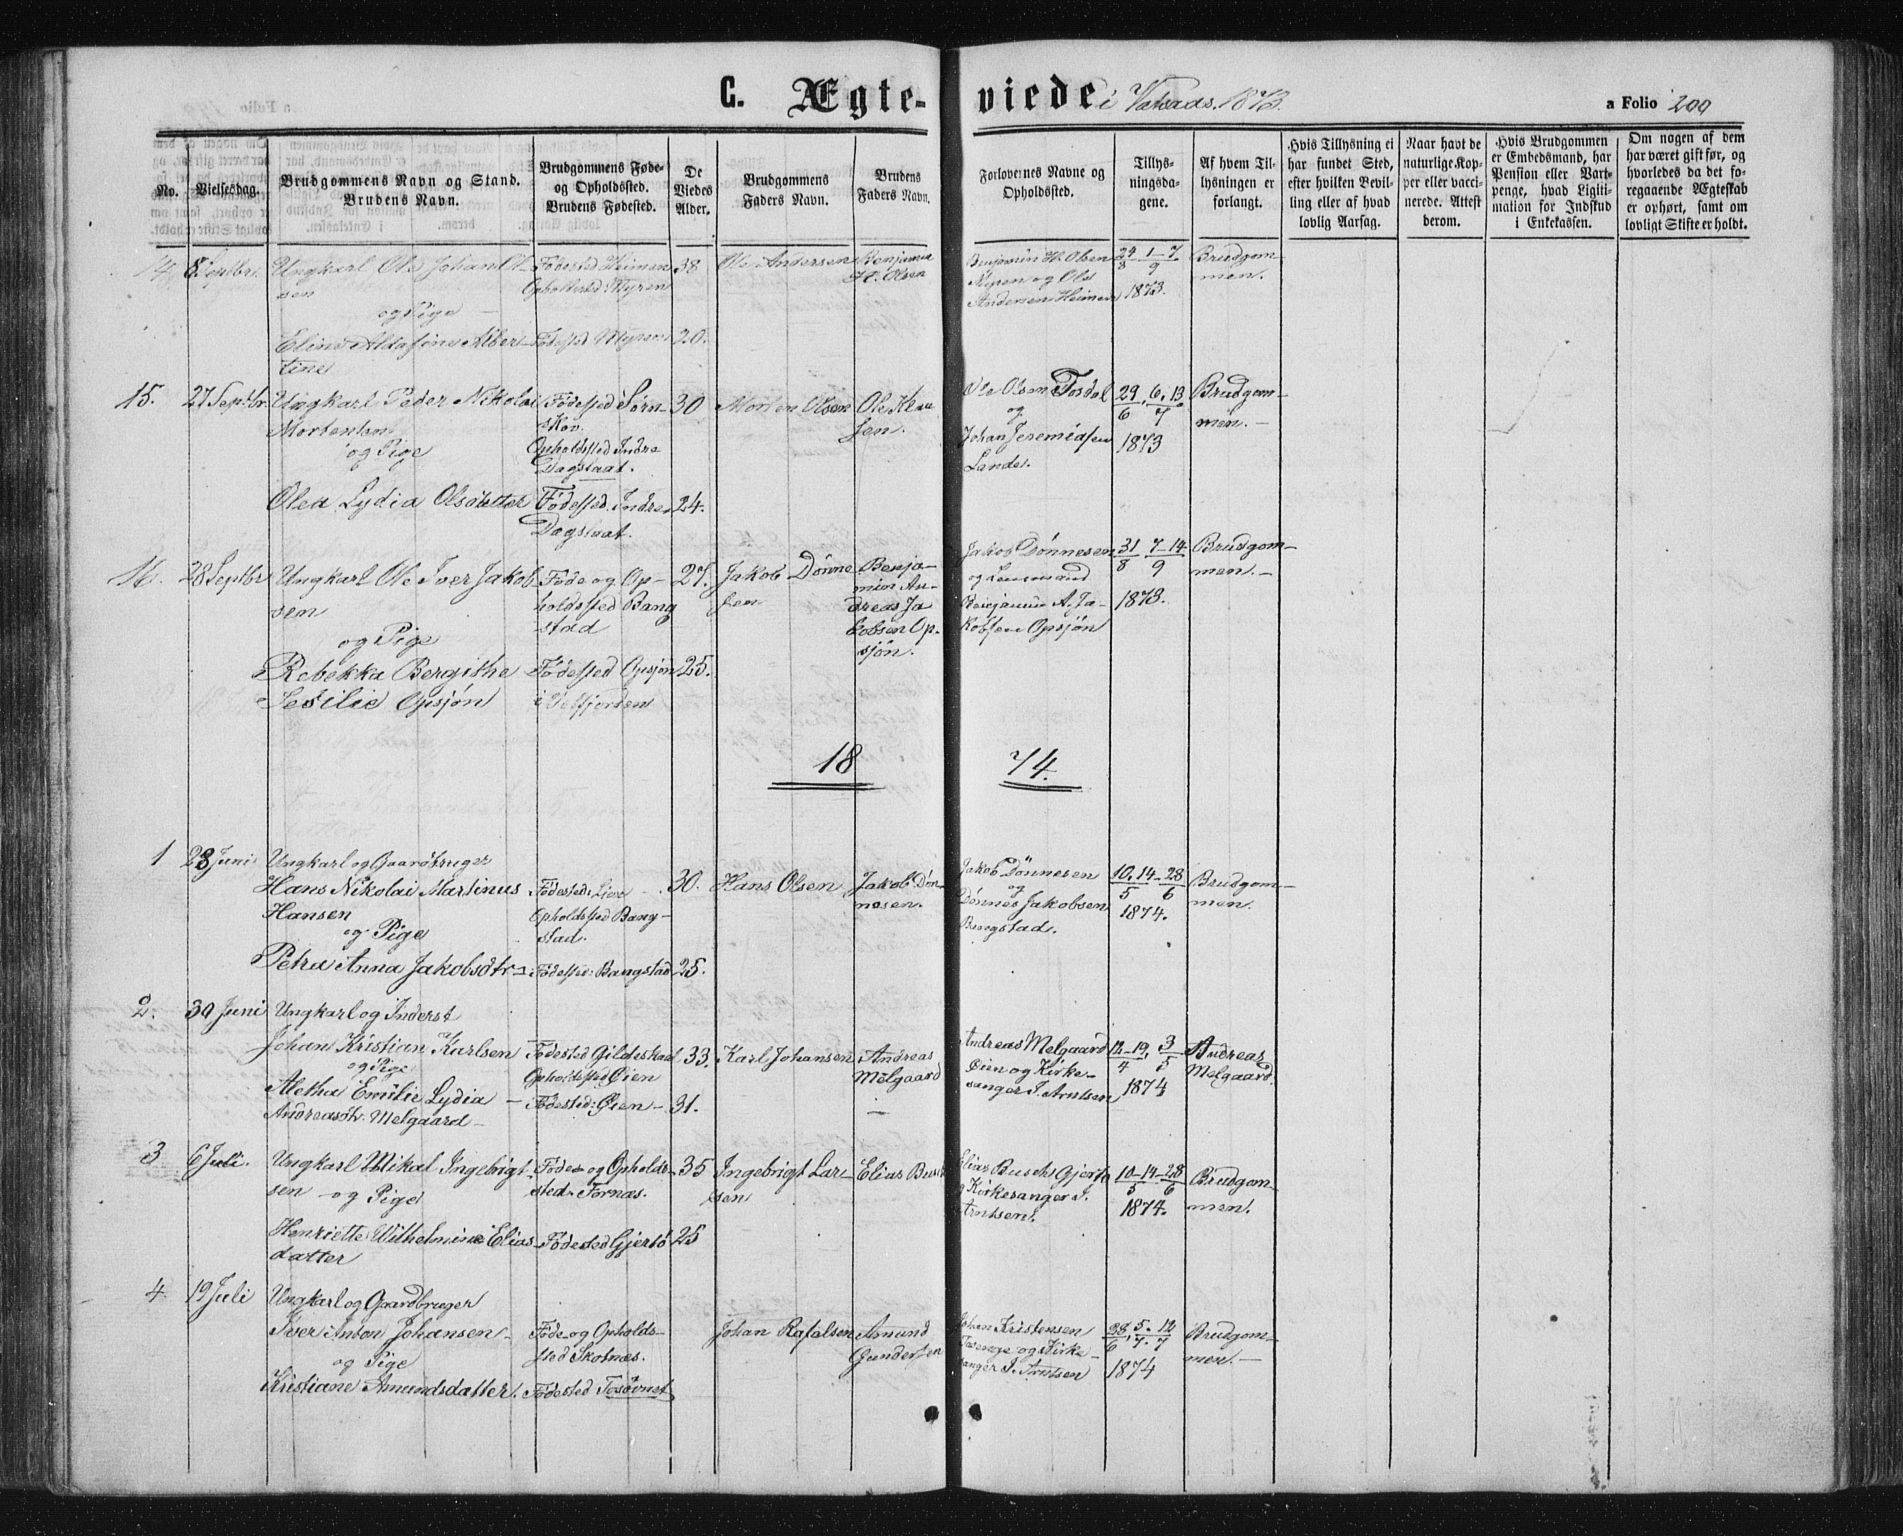 C. Ægte-viede i Valsaas. 1873. a Folio 200
No.
Vielsesdag.
Brudgommens Navn og Stand.
Brudens Navn.
Brudgommens Føde-
og Opholdssted.
Brudens Fødested.
De
Viedes
Alder.
Brudgommens
Faders Navn.
Brudens
Faders Navn.
Forlovernes Navne og
Opholdssted.
Tillys-
ningsda-
gene.
Af hvem Til-
lysningen er
forlangt.
Hvis Tillysning ei
har fundet Sted,
efter hvilken Bevil-
ling eller af hvad
lovlig Aarsag.
Naar havt de
naturlige Kop-
per eller vacci-
nerede. Attest
derom.
Hvis Brudgommen
er Embedsmand, har
Pension eller Vart-
penge, hvad Ligiti-
mation for Indskud
i Enkekassen.
Om nogen af dem
har været gift før, og
hvorledes da det fo-
regaaende Ægteskab
er ophørt, samt om
lovligt Skifte er holdt.
14. 8 Septbr. Ungkarl Ole Johan Ol-
sen
og Pige
Eline Aldasine Alber-
tine
Fødested Heimen
Opholdssted: Myren
Fødested Myren
38
20.
Ole Andersen
Benjamin
H. Olsen
Benjamin H. Olsen
Myren og Ole
Andersen Heimen
24/8 1-7/9
1873.
Brudgom-
men.
15. 27 Septbr. Ungkarl Peder Nikolai
Mortensen
og Pige
Olea Lydia Olsdatter
Fødested Sørn-
skov.
Opholdssted Indre
Dagslaat.
Fødested. Indre
Dagslaat.
30
24.
Morten Olsen
Ole Klau
sen.
Ole Olsen Tosdal
og
Johan Jeremiasen
Lande.
29/6, 6, 13/7
1873
Brudgom-
men.-
16. 28 Septbr Ungkarl Ole Iver Jakob
sen
og Pige
Rebekka Bergithe
Sesilie Opsjøn
Føde og Op-
holdssted Bang
stad
Fødested Opsjøn
i Velfjorden
27.
25.
Jakob Dønne
sen
Benja-
min An-
dreas Ja
kobsen Op-
sjøn.
Jakob Dønnesen
og Lensmand
Benjamin A. Ja-
kobsen Opsjøn
31/8 7-14/9
1873.
Brudgom-
men.-
1874.
1 28 Juni Ungkarl og Gaardbruger
Hans Nikolai Martinus
Hansen
og Pige
Petra Anna Jakobsdtr-
Fødested: Lien
Opholdssted Bang-
stad.
Fødested: Bangstad
30.
25.
Hans Olsen
Jakob Døn-
nesen.
Jakob Dønnesen
og
Dønnes Jakobsen
Bangstad.
10, 14-28
5 6
1874.
Brudgom-
men.
2. 30 Juni Ungkarl og Inderst
Johan Kristian Karlsen
og Pige
Aletha Emilie Lydia
Andreasdtr. Melgaard-
Fødested Gildeskaal
Opholdssted Øien
Fødested: Øien-
33.
31.
Karl Johansen
Andreas
Melgaard
Andreas Melgaard
Øien og Kirke-
sanger J. Arntsen
12-19/4, 3/5
1874
Andreas
Melgaard.
3 6 Juli. Ungkarl Mikal Ingebrigt-
sen - og Pige
Henriette Wilhelmine Elias-
datter
Føde og Opholds-
sted Fornæs.
Fødested Gjersø
35
25
Ingebrigt Lar-
sen
Elias Busch
Elias Busch Gjersø
og Kirkesanger J.
Arntsen.
10-14-28
5 6
1874.
Brudgom-
men.
4. 19 Juli Ungkarl og Gaardbruger
Iver Anton Johansen-
og Pige
Kristiane Amundsdatter.
Føde og Opholds-
sted Skotnæs.
Fødested Tosøvnet
Johan Rafalsen
Amund
Gundersen
Johan Kristensen
og Kirke-
sanger J. Arntsen
28/6, 5.-12/7
1874
Brudgom-
men.-